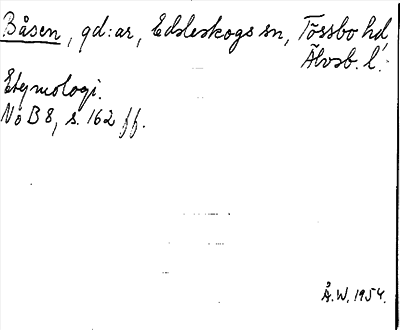 Båsen, gd:ar, Edsleskogs sn, Tössbo hd,
Älvsb. l.
Etymologi.
NoB 8, s. 162 ff.
Å.W. 1954.